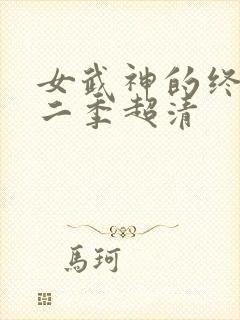 女武神的终
二季超清
馬珂